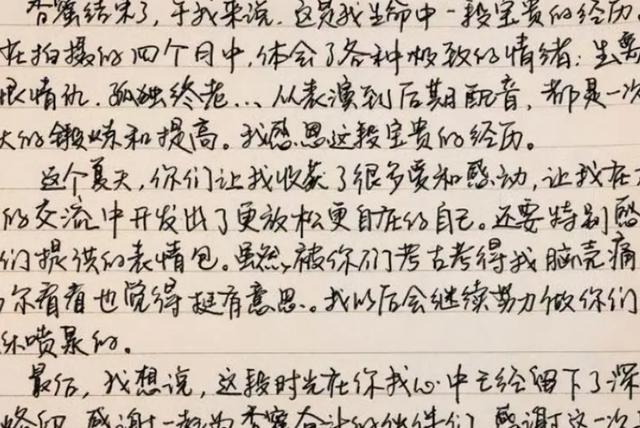 香蜜结束了,于我来说,这是我生命中一段宝贵的经历。
在拍摄的四个月中,体会了各种极致的情绪:生离
恨情仇.孤独终老...从表演到后期配音,都是一次
大的锻炼和提高。我感恩这段宝贵的经历。
这个夏天,你们让我收获了很多爱和感动,让我在
的交流中开发出了更放松更自在的自己。还要特别感
们提供的表情包。虽然,被你们考古考得我脑壳痛
尔看看也觉得挺有意思。我以后会继续努力做你们
喷泉的。
最后,我想说,这段时光在你我心中已经留下了深
烙印,感谢一起为香蜜合计的伙伴们,感谢这一次